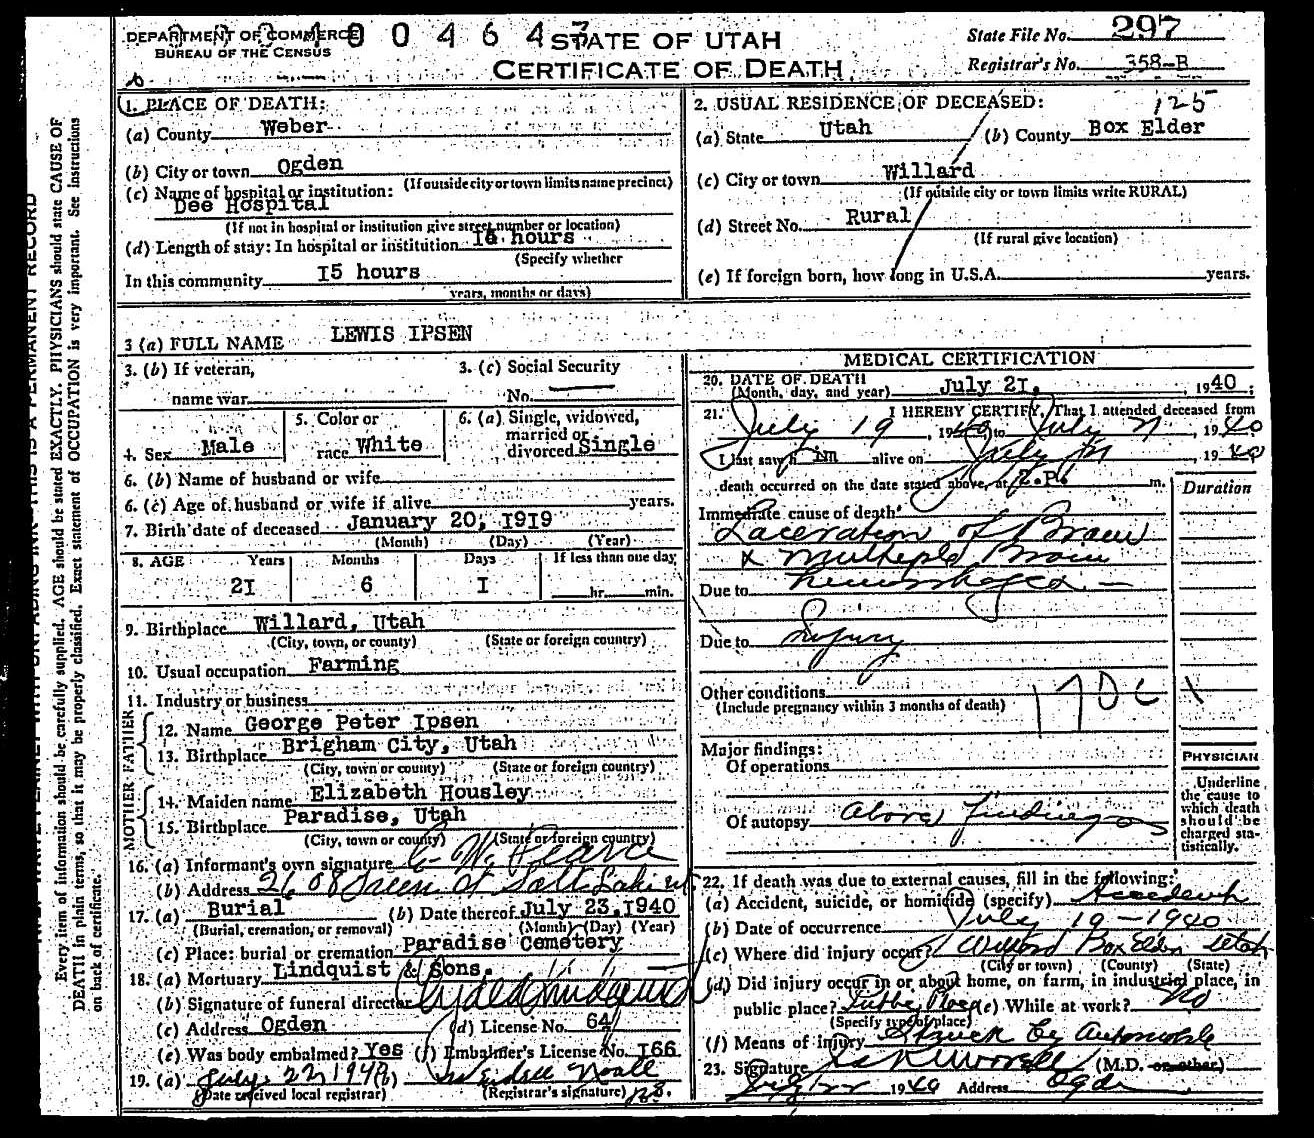 DEPARTMENT OF COMMERCE
BUREAU OF THE CENSUS
STATE OF UTAH
CERTIFICATE OF DEATH
State File No. 297
Registrar's No. 358-B
1. PLACE OF DEATH:
(a) County Weber
(b) City or town Ogden
(If outside city or town limits name precinct)
(c) Name of hospital or institution:
Dee Hospital
(If not in hospital or institution give street number or location)
(d) Length of stay: In hospital or institution hours
(Specify whether
In this community 15 hours
years, months or days)
2. USUAL RESIDENCE OF DECEASED: 125
(a) State Utah (b) County Box Elder
(c) City or town Willard
(If outside city or town limits write RURAL)
(d) Street No. Rural
(If rural give location)
(e) If foreign born, how long in U.S.A. years.
3 (a) FULL NAME LEWIS IPSEN
3. (b) If veteran,
name war
3. (c) Social Security
No.
4. Sex Male
5. Color or
race White
6. (a) Single, widowed,
married or
divorced Single
6. (b) Name of husband or wife
6. (c) Age of husband or wife if alive years.
7. Birth date of deceased January 20, 1919
(Month) (Day) (Year)
8. AGE Years Months Days If less than one day
21 6 1 hr. min.
9. Birthplace Willard, Utah
(City, town, or county) (State or foreign country)
10. Usual occupation Farming
11. Industry or business
FATHER
12. Name George Peter Ipsen
13. Birthplace Brigham City, Utah
(City, town or county) (State or foreign country)
MOTHER
14. Maiden name Elizabeth Housley
15. Birthplace Paradise, Utah
(City, town or county) (State or foreign country)
16. (a) Informant's own signature C. W. Pearce
(b) Address 2608 Green St Salt Lake ut
17. (a) Burial (b) Date thereof July 23, 1940
(Burial, cremation, or removal) (Month) (Day) (Year)
(c) Place: burial or cremation Paradise Cemetery
18. (a) Mortuary Lindquist & Sons.
(b) Signature of funeral director Clyde Lindquist
(c) Address Ogden (d) License No. 64
(e) Was body embalmed? Yes (f) Embalmer's License No. 166
19. (a) July 22, 1940 (b)
(Date received local registrar) (Registrar's signature)
MEDICAL CERTIFICATION
20. DATE OF DEATH
(Month, day, and year) July 21, 1940;
21. I HEREBY CERTIFY, That I attended deceased from
July 19, 1940 to July 21, 1940
I last saw him alive on July 21 1940
death occurred on the date stated above, at 2 P. m.
Duration
Immediate cause of death
Laceration of Brain
& Multiple Brain
Due to hemorrhages
Due to Injury
Other conditions
(Include pregnancy within 3 months of death)
170c
Major findings:
Of operations
Of autopsy Above findings
PHYSICIAN
Underline
the cause to
which death
should be
charged sta-
tistically.
22. If death was due to external causes, fill in the following:
(a) Accident, suicide, or homicide (specify) Accident
(b) Date of occurrence July 19-1940
(c) Where did injury occur? Willard Box Elder Utah
(City or town) (County) (State)
(d) Did injury occur in or about home, on farm, in industrial place, in
public place? Public Place (e) While at work? no
(Specify type of place)
(f) Means of injury Struck by Automobile
23. Signature (M.D. or other)
July 22 1940 Address Ogden
Every item of information should be carefully supplied. AGE should be stated EXACTLY. PHYSICIANS should state CAUSE OF
DEATH in plain terms, so that it may be properly classified. Exact statement of OCCUPATION is very important. See instructions
on back of certificate.